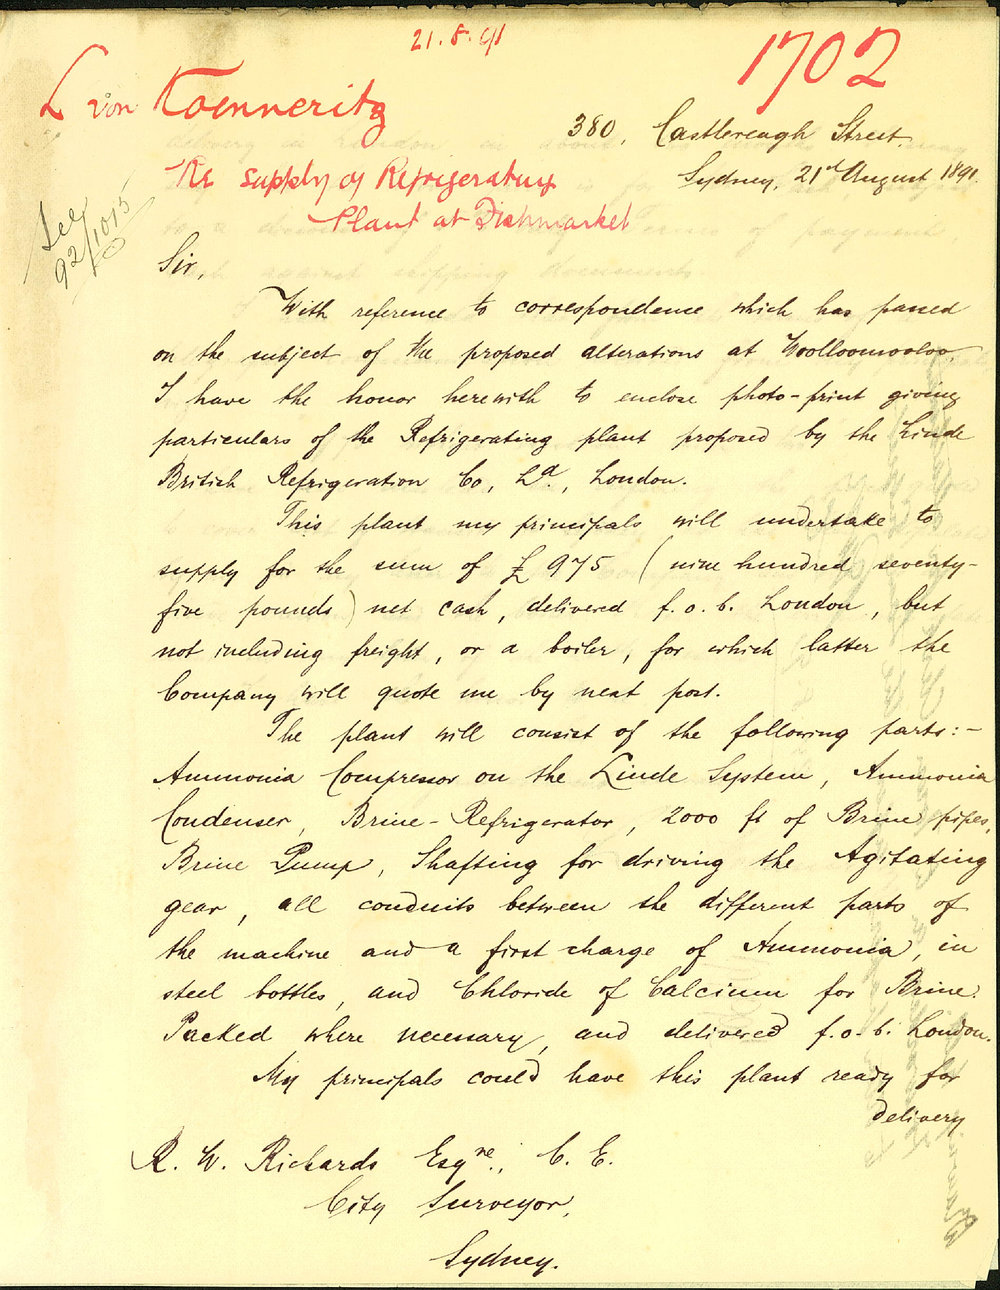 21.8.91
1702
L von Koenneritz
380, Castlereagh Street,
Re Supply of Refrigerating
Sydney, 21st August 1891.
Plant at Fishmarket
See
92/1015
Sir,
With reference to correspondence which has passed
on the subject of the proposed alterations at Woolloomooloo,
I have the honor herewith to enclose photo-print giving
particulars of the Refrigerating plant proposed by the Linde
British Refrigeration Co, Ld., London.
This plant my principals will undertake to
supply for the sum of £975 (nine hundred seventy-
five pounds) net cash, delivered f.o.b. London, but
not including freight, or a boiler, for which latter the
Company will quote me by next post.
The plant will consist of the following parts:-
Ammonia Compressor on the Linde System, Ammonia
Condenser, Brine-Refrigerator, 2000 ft of Brine pipes,
Brine Pump, Shafting for driving the Agitating
gear, all conduits between the different parts of
the machine and a first charge of Ammonia, in
steel bottles, and Chloride of Calcium for Brine.
Packed where necessary, and delivered f.o.b. London.
My principals could have this plant ready for
delivery
R. W. Richards Esqre., C. E.
City Surveyor,
Sydney.